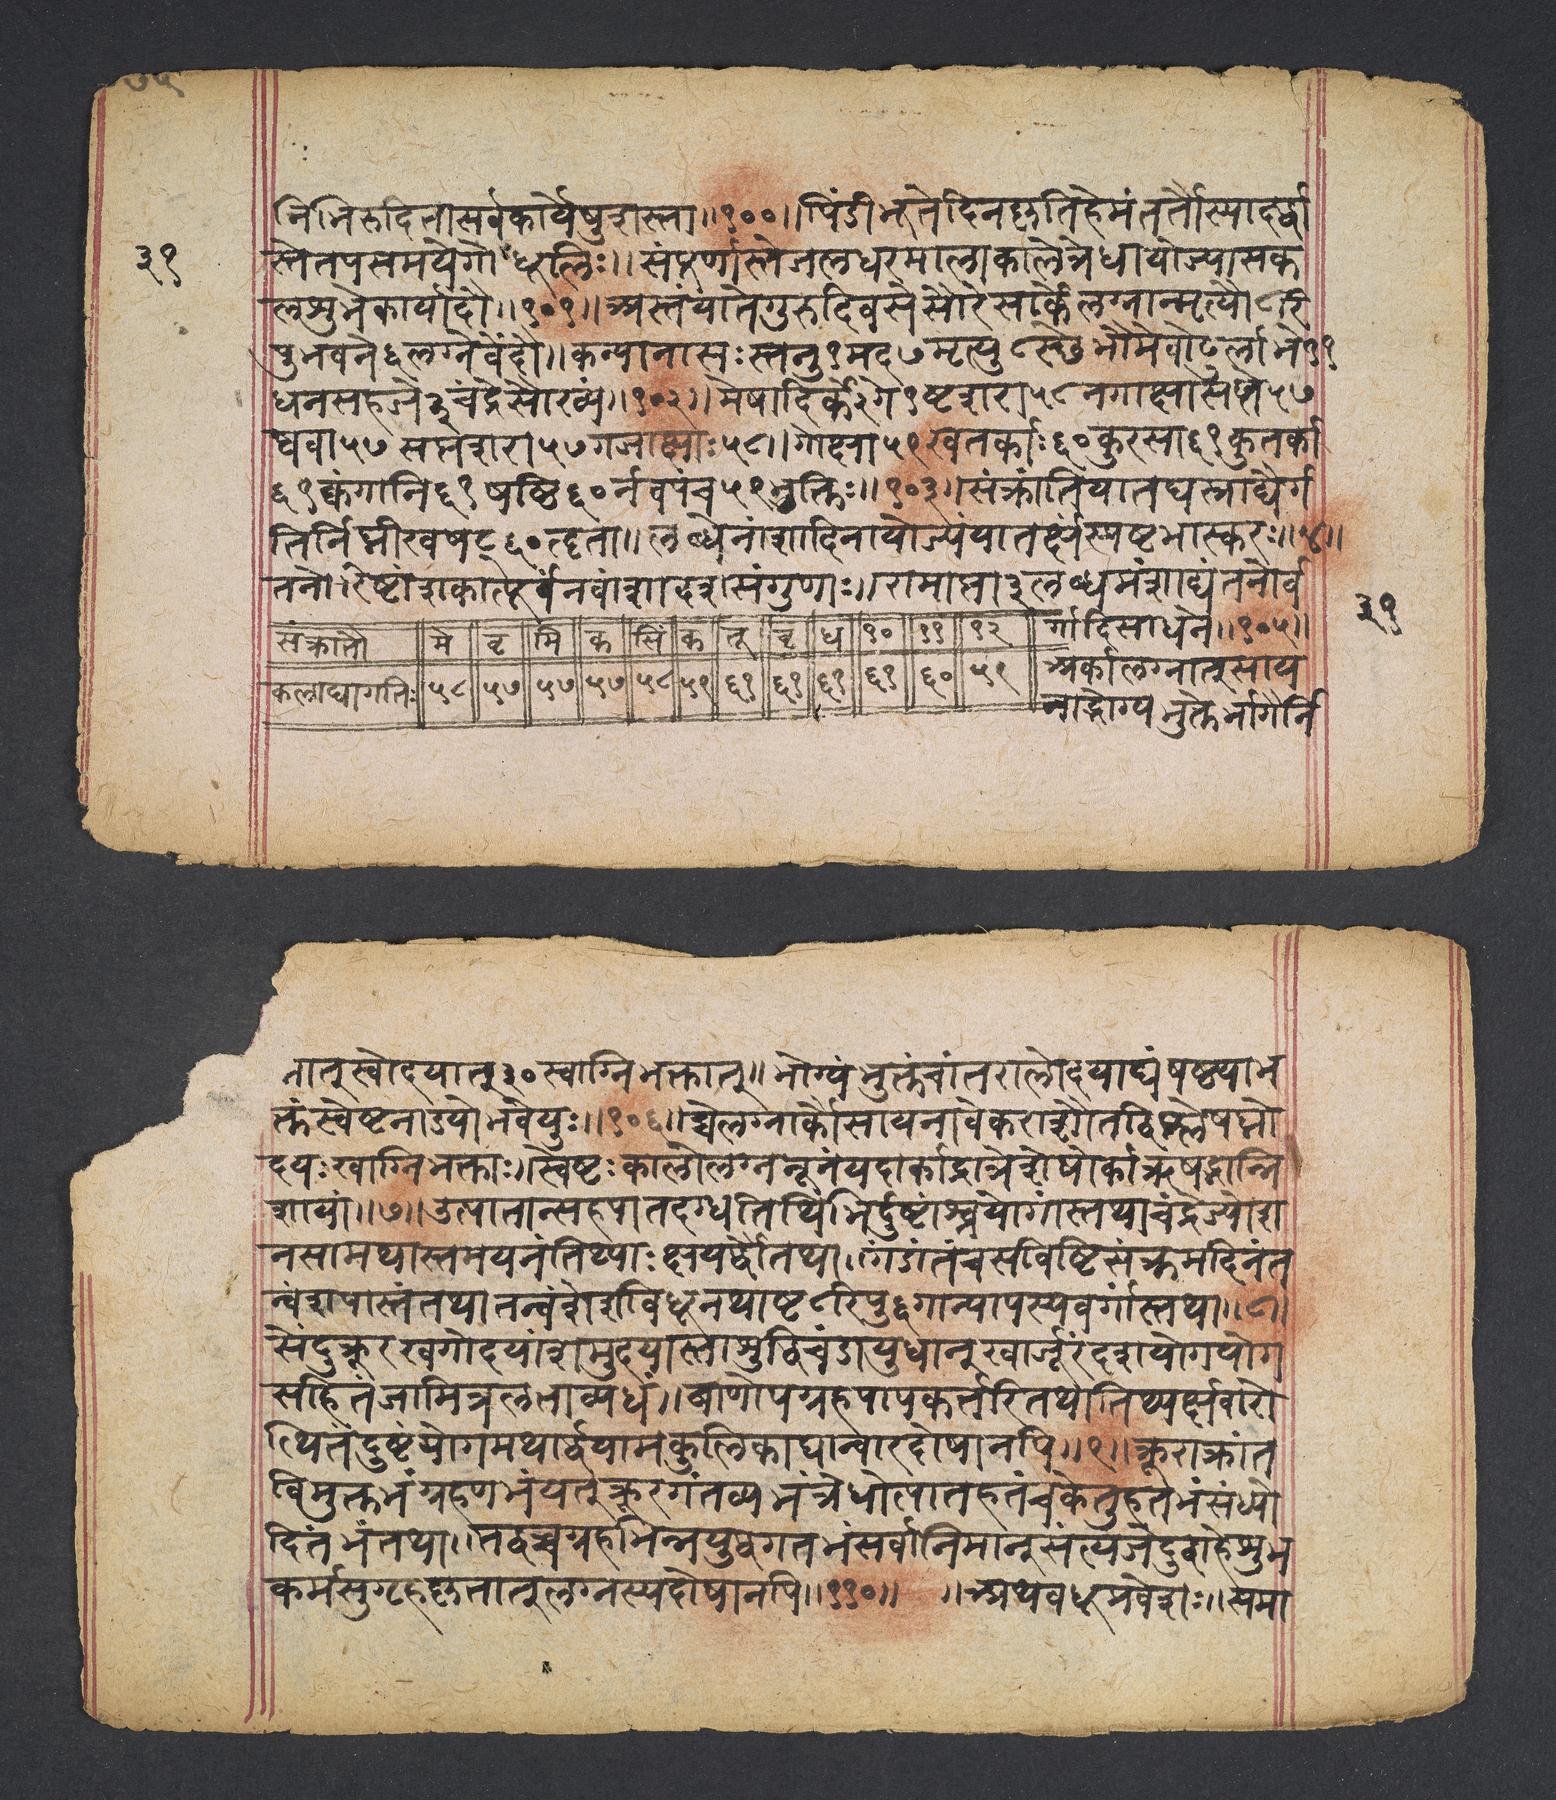 ७५
निभिरुदितासर्वकार्येषुशस्ता॥१००॥पिंडीभूतेदिनकृतिहेमंतर्तौस्यादर्द्धा
३१
स्तेतपसमयेगोधूलिः॥संपूर्णास्तेजलधरमालाकालेत्रेधायोज्यासक
लशुभेकार्यादौ॥१०१॥अस्तंयातेगुरुदिवसेसौरेसार्केलग्नान्मृत्यौ८रि
पुभवने६लग्नेवेंदौ॥कन्यानाशःस्तनु१मद७मृत्यु८स्छेभौमेवोढुर्लाभे११
धनसहजे३चंद्रेसौख्यं॥१०२॥मेषादिर्केरगे९ष्टशरा५८नगाक्षासप्ते५७
षवा५७सप्तशरा५७गजाक्षाः५८॥गोक्षा५९खतर्काः६०कुरसा६१कुतर्का
६१क्वंगानि६१षष्ठि६०र्नवपंच५९भुक्तिः॥१०३॥संक्रांतियातघस्राद्यैर्ग
तिर्निघ्नीखषट्६०त्दृता॥लब्धेनांशादिनायोज्यंयातर्क्षंस्पष्टभास्करः॥४॥
तनोरिष्टांशकात्पूर्वंनवांशादशसंगुणाः॥रामाप्ता३लब्धमंशाद्यंतनोर्व
र्गादिसाधने॥१०५॥
३१
संक्रातौ मे वृ मि क सिं क तू वृ ध १० ११ १२
अर्कालग्नातुसाय
कलाद्यागतिः ५८ ५७ ५७ ५७ ५८ ५९ ६१ ६१ ६१ ६१ ६० ५९
नाद्भोग्यभुक्तेर्भागैर्नि
नातुस्वोदयातु३०खाग्निभक्तातु॥भोग्यंभुक्तंचांतरालोदयाद्यंषष्ठ्याभ
क्तंस्वेष्टनाड्योभवेयुः॥१०६॥द्येलग्नार्कौसायनावेकराशौतद्विश्लेषघ्नो
दयःखाग्निभक्ताः॥स्वेष्टःकालोलग्नमूनंयदार्काद्रात्रेशेषोर्काऋषद्भान्नि
शायां॥७॥उत्पातान्सहपातदग्धतिथिभिर्दुष्टांश्चयोगांस्तथाचंद्रेज्योश
नसामथास्तमयनंतिथ्याःक्षयर्द्धीतथा॥गंडांतंचसविष्टिसंक्रमदिनंत
न्वंशपास्तंतथातन्वंशेशविधूनथाष्ट८रिपु६गान्पापस्यवर्गांस्तथा॥८॥
सेंदुक्रूरखगोदयांशमुदयास्ताशुद्धिचंडायुधान्खार्जूरंदशयोगयोग
सहितंजामित्रलत्ताव्यधं॥बाणोपग्रहपापकर्त्तरितथातिथ्यर्क्षवारो
त्थितंदुष्टंयोगमथार्द्धयामकुलिकाद्यान्वारदोषानपि॥९॥क्रूराक्रांत
विमुक्तभंग्रहणभंयत्क्रूरगंतव्यभंत्रेधोत्पातहतंचकेतुहतभंसंध्यो
दितंभंतथा॥तद्वच्चग्रहभिन्नयुद्धगतभंसर्वानिमान्संत्यजेदुद्वाहेशुभ
कर्मसुग्रहकृतातुलग्नस्यदोषानपि॥११०॥ ॥अथवधूप्रवेशः॥समा